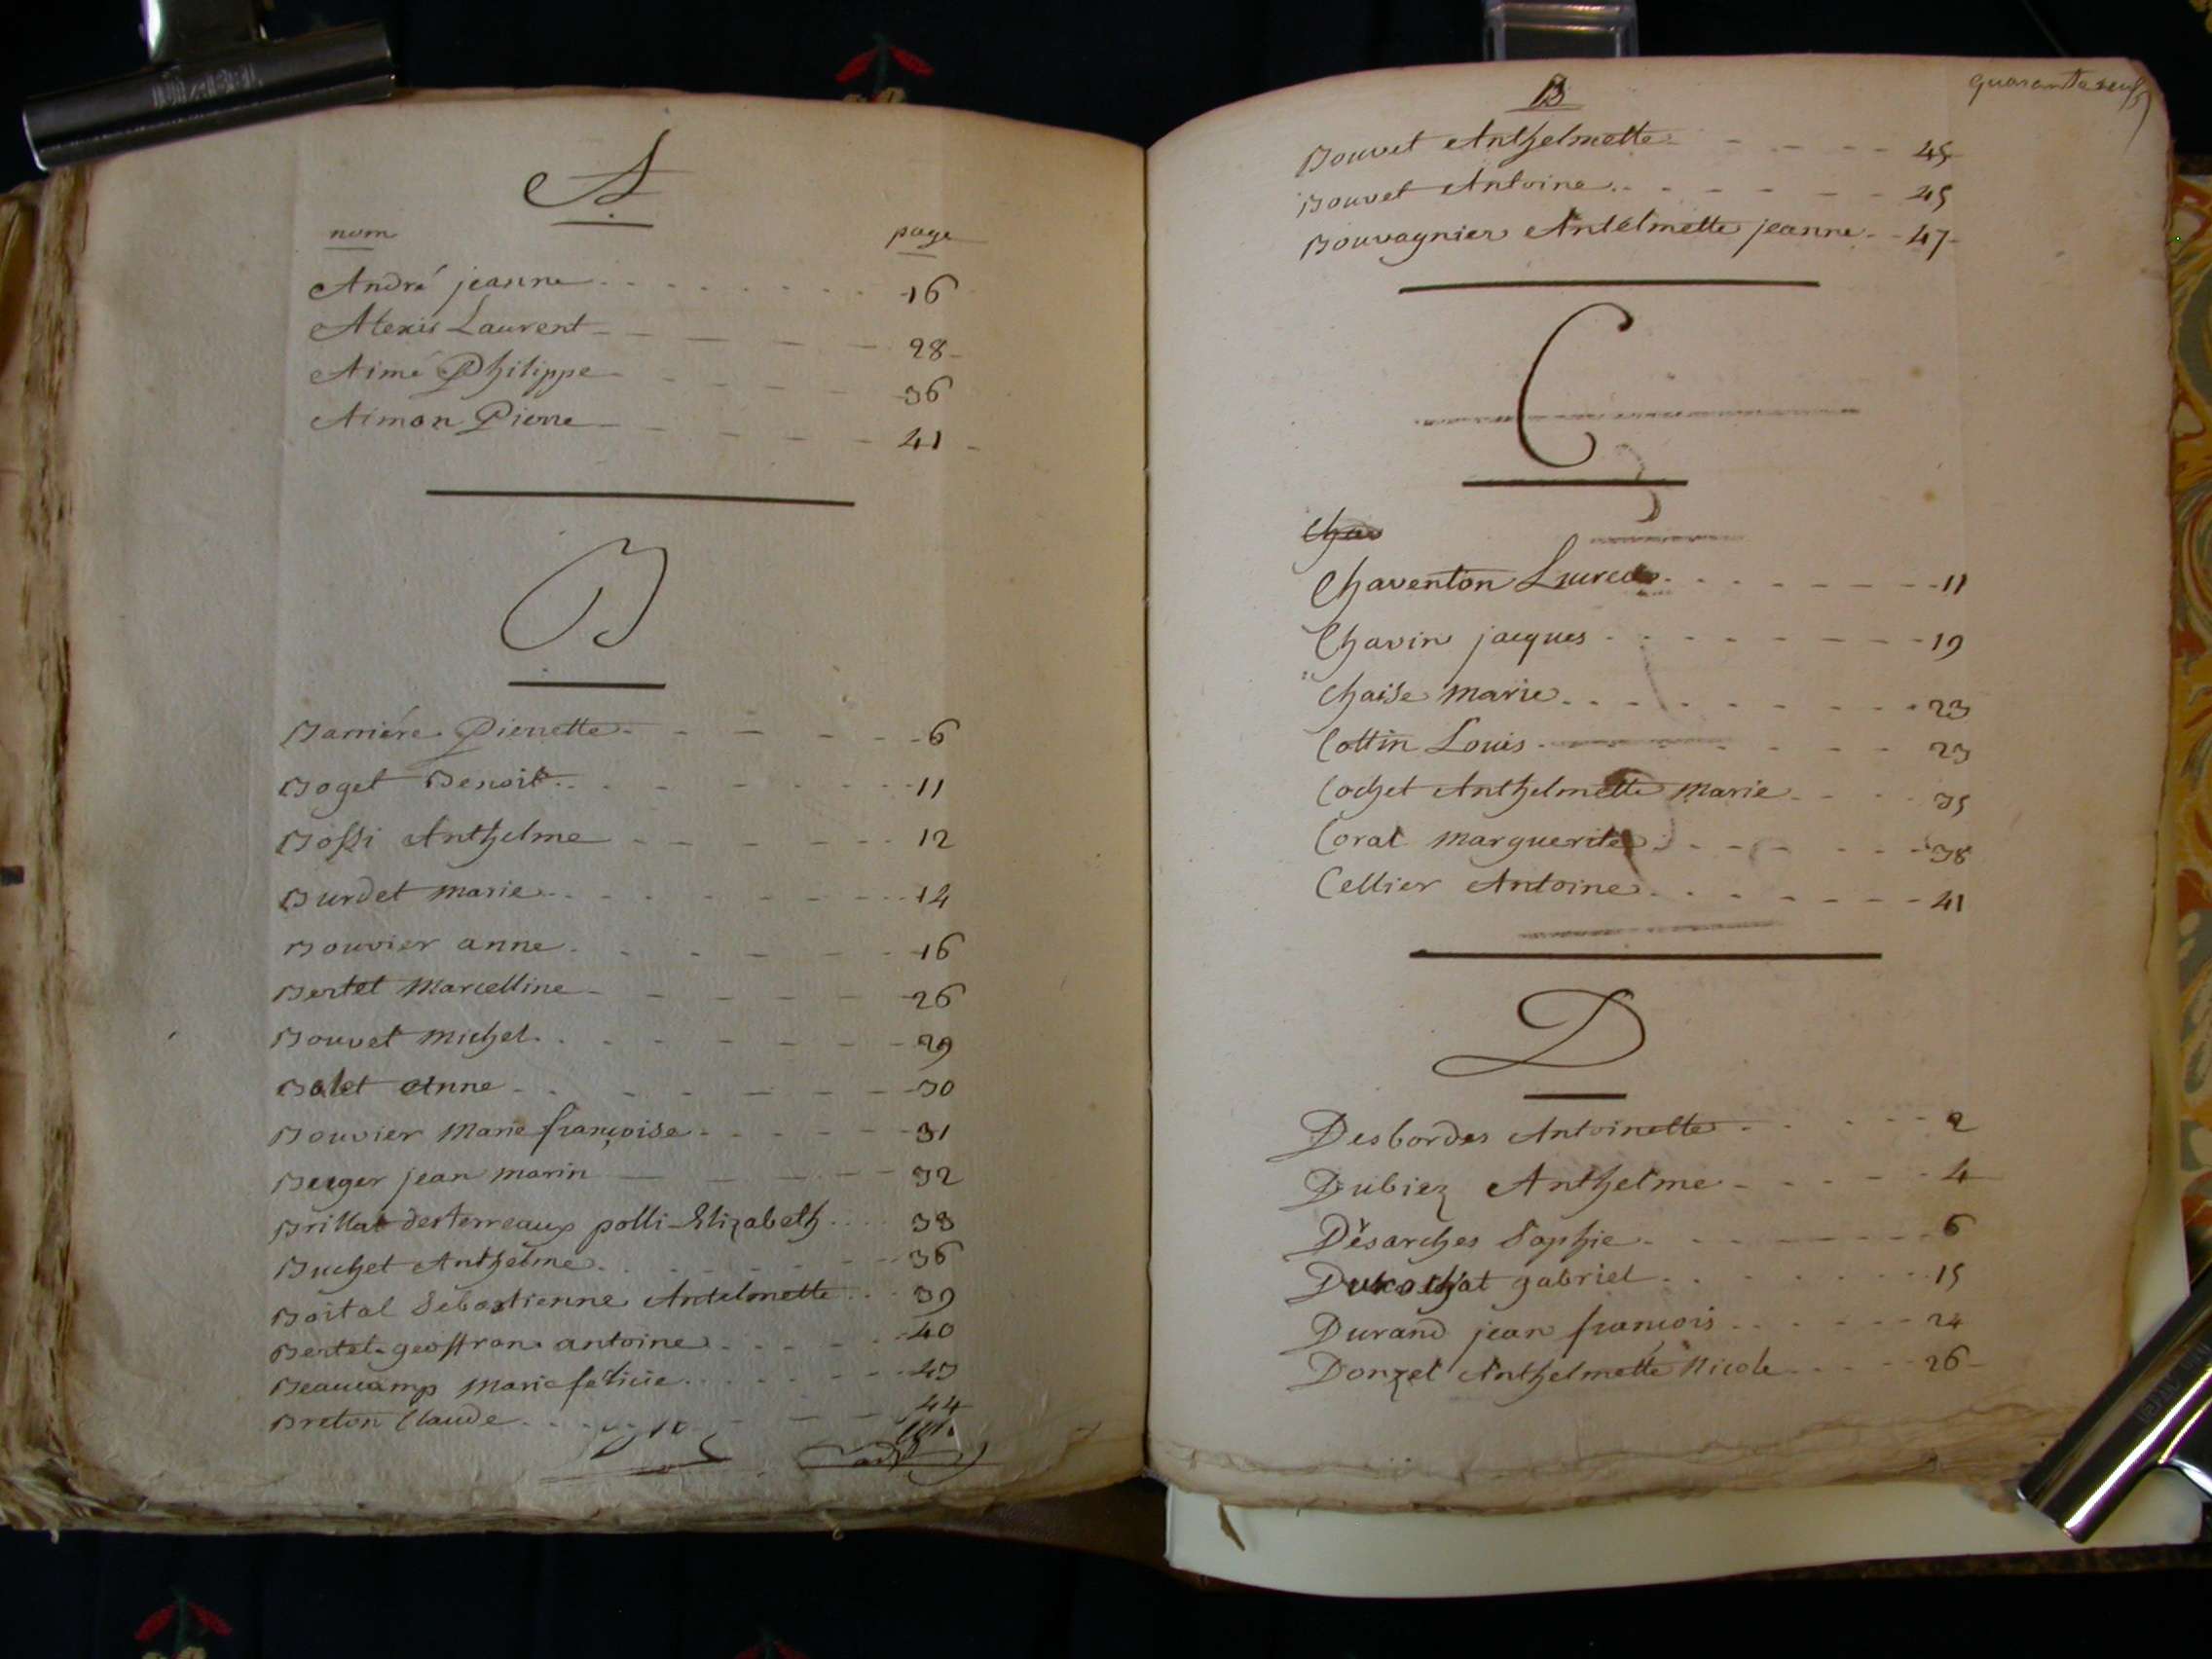 A
nom page
André jeanne 16
Alexis Laurent 28
Aimé Philippe 36
Aimon Pierre 41
B
Barriére Pierrette 6
Boget Benoit 11
Bossi Anthelme 12
Burdet marie 14
Bouvier anne 16
Bertet Marcelline 26
Bouvet Michel 29
Balet Anne 30
Bouvier Marie françoise 31
Berger jean marin 32
Brillat desterreaux polli Elizabeth 33
Buchet Anthelme 36
Boital Sébastienne Antelmette 39
Bertet geoffran antoine 40
Beaucamp Marie félicie 43
Breton Claude 44
B
quarante neuf
Bouvet Anthelmette 45
Bouvet Antoine 45
Bouvagnier Antelmette jeanne 47
C
Chaventon 11
Chavin jacques 19
Chaise marie 23
Cottin Louis 23
Cochet Anthelmette Marie 35
Corat Marguerite 38
Cellier Antoine 41
D
Desbordes Antoinette 2
Dubiez Anthelme 4
Désarches Sophie 6
gabriel 15
Durand jean francois 24
Donzel Anthelmette Nicole 26